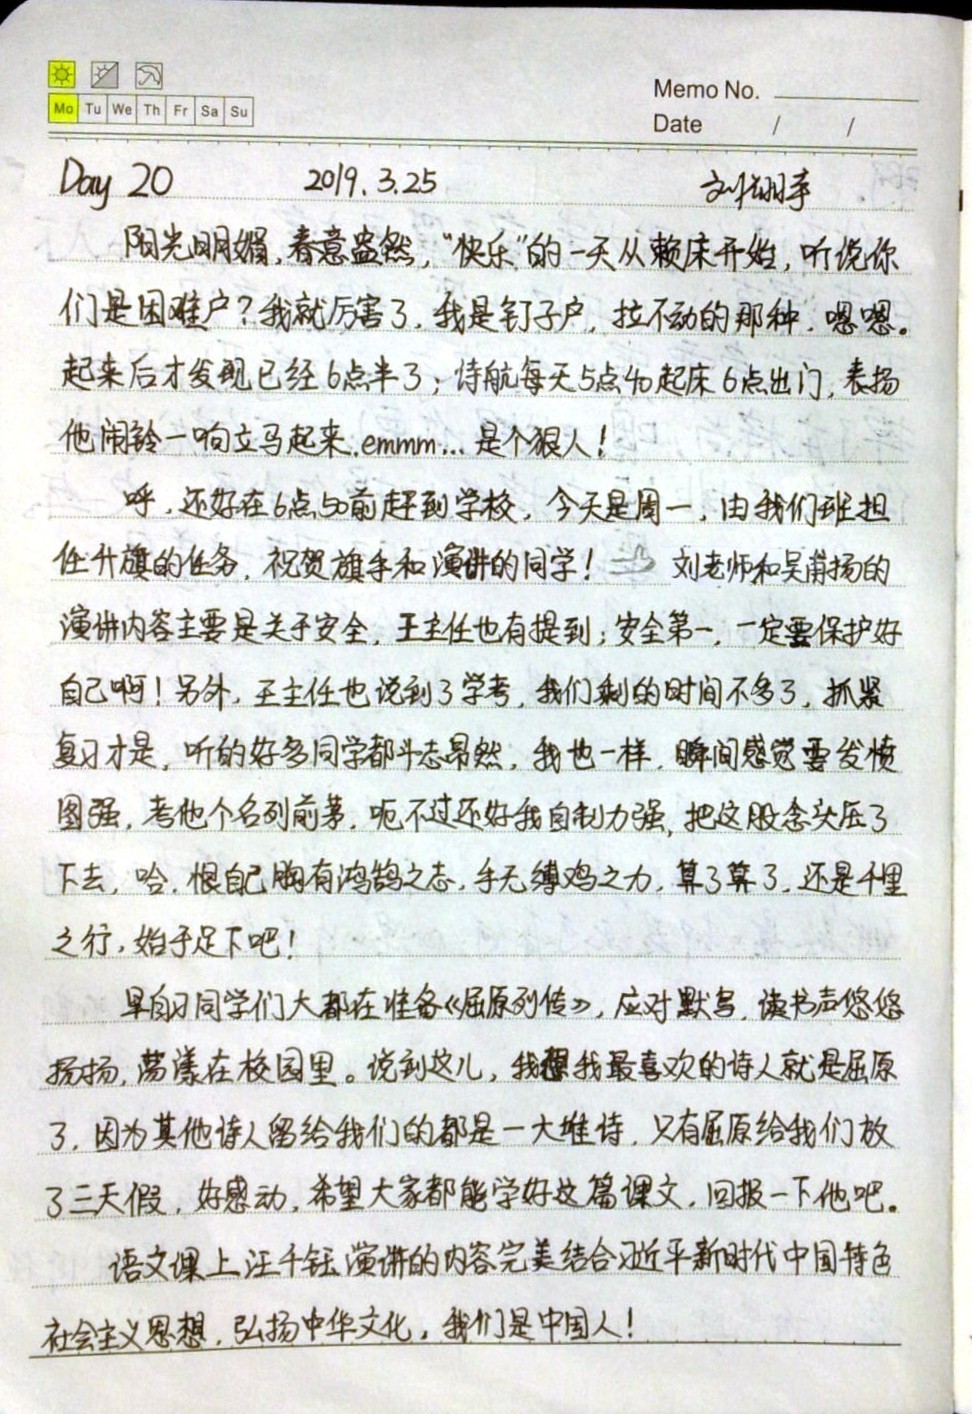 Memo No.
Mo Tu We Th Fr Sa Su
Date / /
Day 20 2019.3.25 刘翊李
阳光明媚,春意盎然,“快乐”的一天从赖床开始,听说你
们是困难户?我就厉害了,我是钉子户,拉不动的那种,嗯嗯。
起来后才发现已经6点半了;诗航每天5点40起床6点出门,表扬
他闹铃一响立马起来.emmm...是个狠人!
呼,还好在6点50前赶到学校,今天是周一,由我们班担
任升旗的任务,祝贺旗手和演讲的同学! 刘老师和吴甫扬的
演讲内容主要是关于安全,王主任也有提到;安全第一,一定要保护好
自己啊!另外,王主任也说到了学考,我们剩的时间不多了,抓紧
复习才是,听的好多同学都斗志昂然,我也一样,瞬间感觉要发愤
图强,考他个名列前茅,呃不过还好我自制力强,把这股念头压了
下去,哈,恨自己胸有鸿鹄之志,手无缚鸡之力,算了算了,还是千里
之行,始于足下吧!
早自习同学们大都在准备《屈原列传》,应对默写,读书声悠悠
扬扬,荡漾在校园里。说到这儿,我想我最喜欢的诗人就是屈原
了,因为其他诗人留给我们的都是一大堆诗,只有屈原给我们放
了三天假,好感动,希望大家都能学好这篇课文,回报一下他吧。
语文课上汪千钰演讲的内容完美结合习近平新时代中国特色
社会主义思想,弘扬中华文化,我们是中国人!